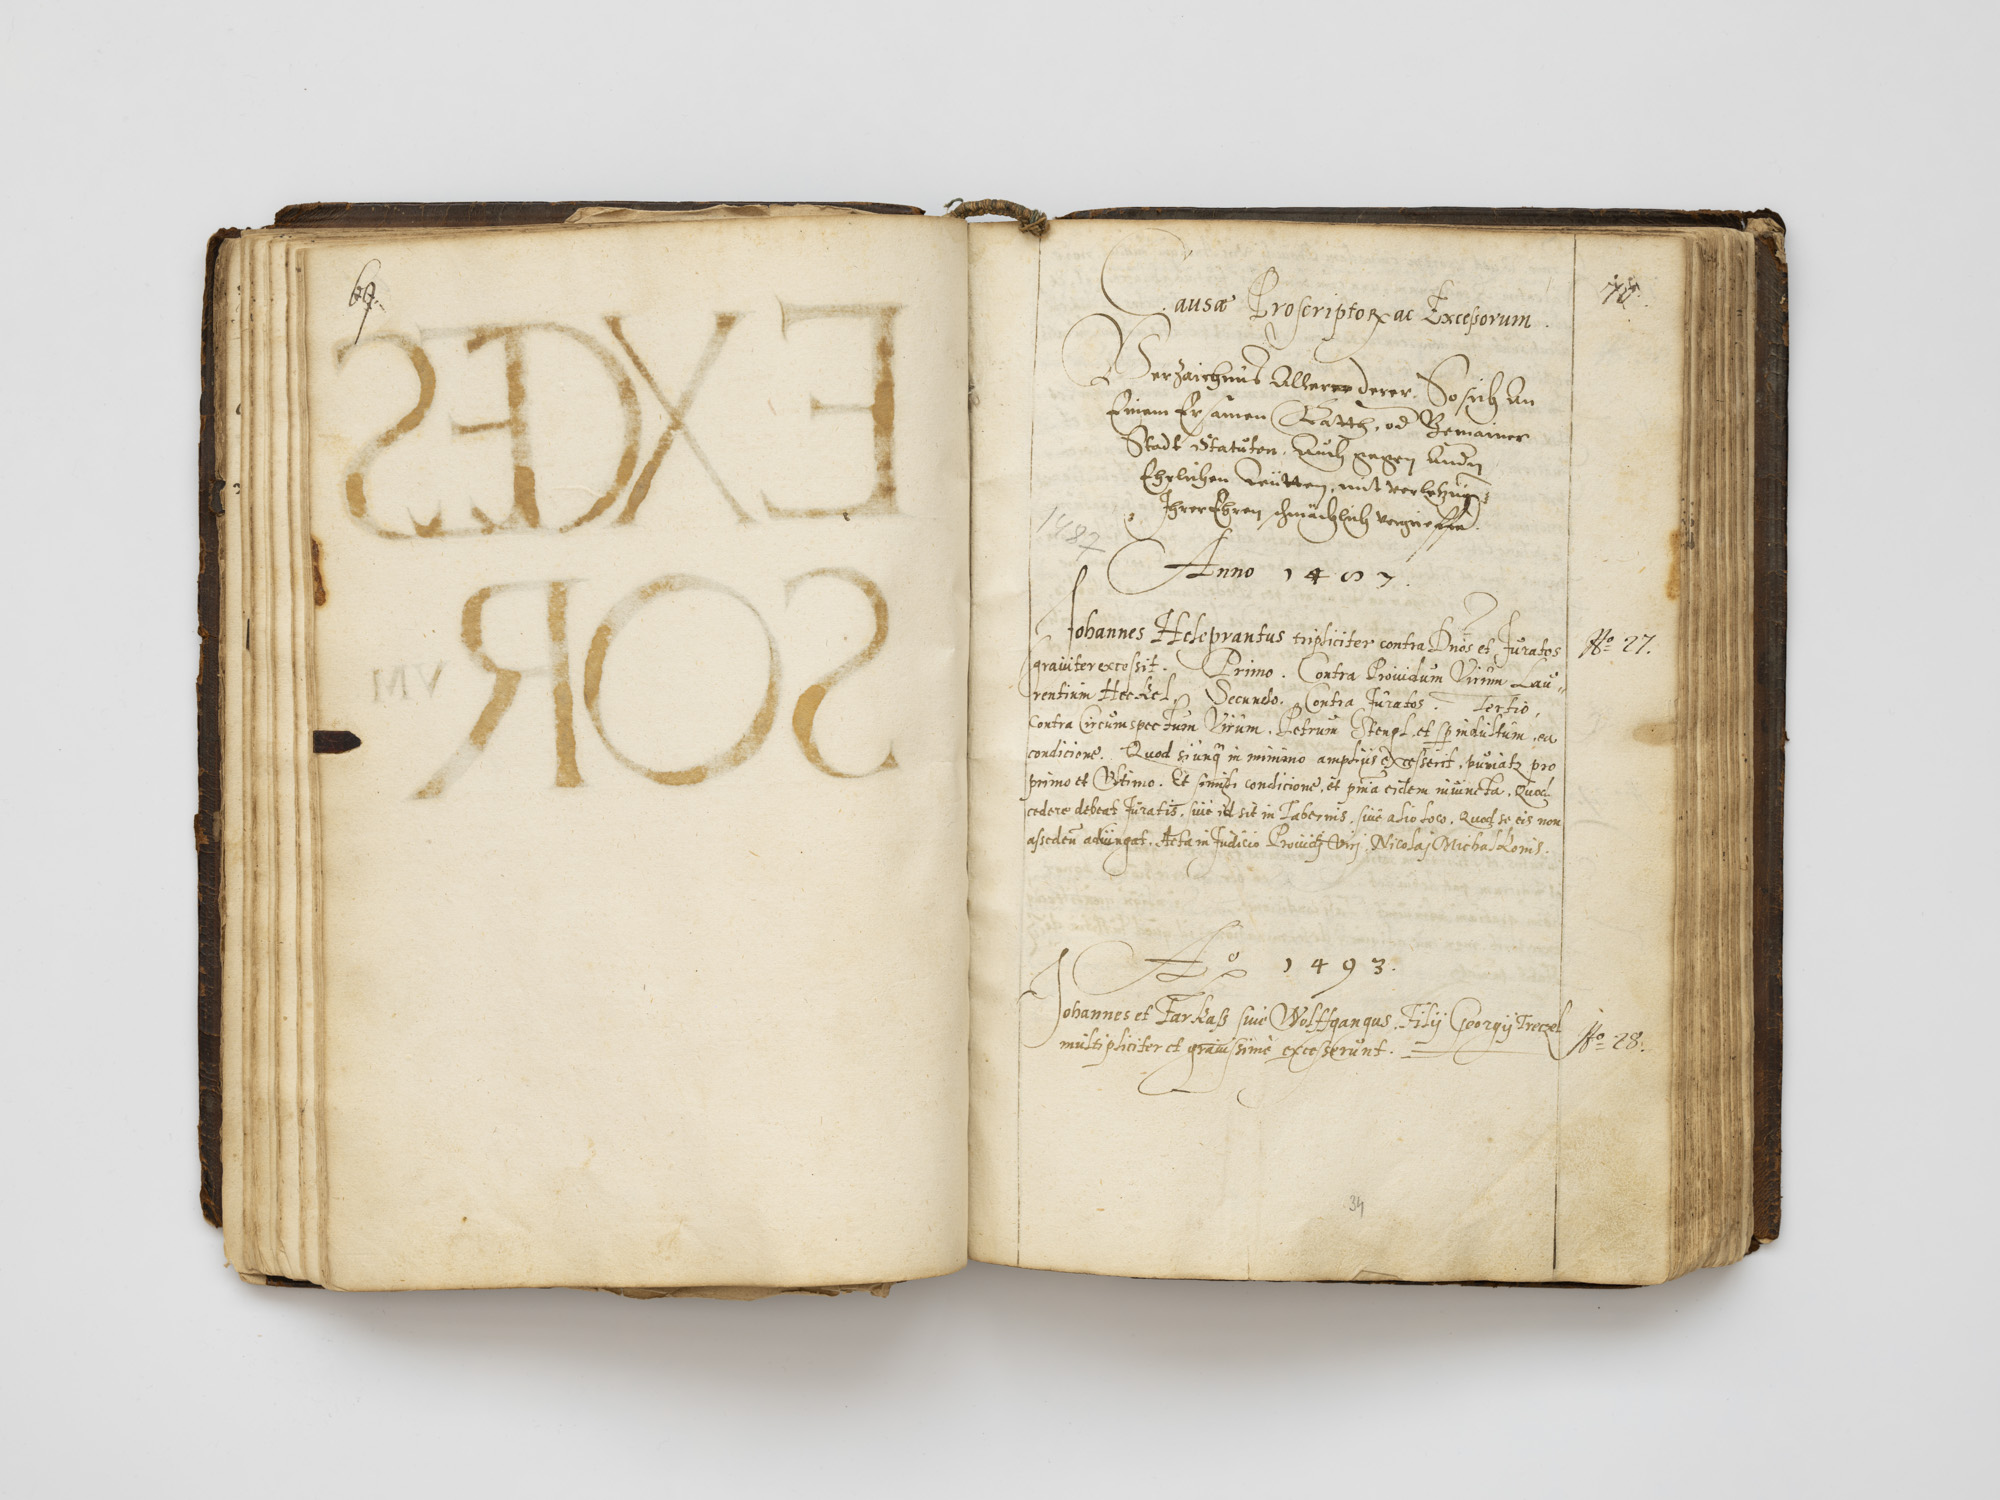 69.
EXCES
SOR
VM
70.
Causæ Proscriptorꝝ ac Excessorum.
Verzaichnüs Aller derer, So sich An
Einem Ersamen Ratth, od Gemainer
Stadt Statuten, Auch gegen Andn
Ehrlichen Leütten, mit verletzŭg
Ihrer Ehren schmächlich vergrieffn.
1487
Anno 1487.
Johannes Helsprantus tripliciter contra Dnos et Juratos
No 27.
grauiter excessit. Primo. Contra Prouidum Virum Lau⸗
rentium Heckel, Secundo. Contra Juratos. Tertio,
Contra Circumspectum Virum. Petrum Stengl, et indultum, ea
condicione. Quod si unq̃ in minimo amplius excesserit, puniatr pro
primo et Vltimo. Et simili condicione, et pœna eidem iniuncta, Quod
cedere debeat Juratis, siue id sit in Tabernis, siue alio loco, Quod se eis non
assedem adiungat. Acta in Judicio Prouid Virj Nicolaj Michael Konis.
Ao 1493.
Johannes et Farkaß siue Wolffgangus, Filij Georgij Treczel
No 28.
multipliciter et grauissime excesserunt.
34